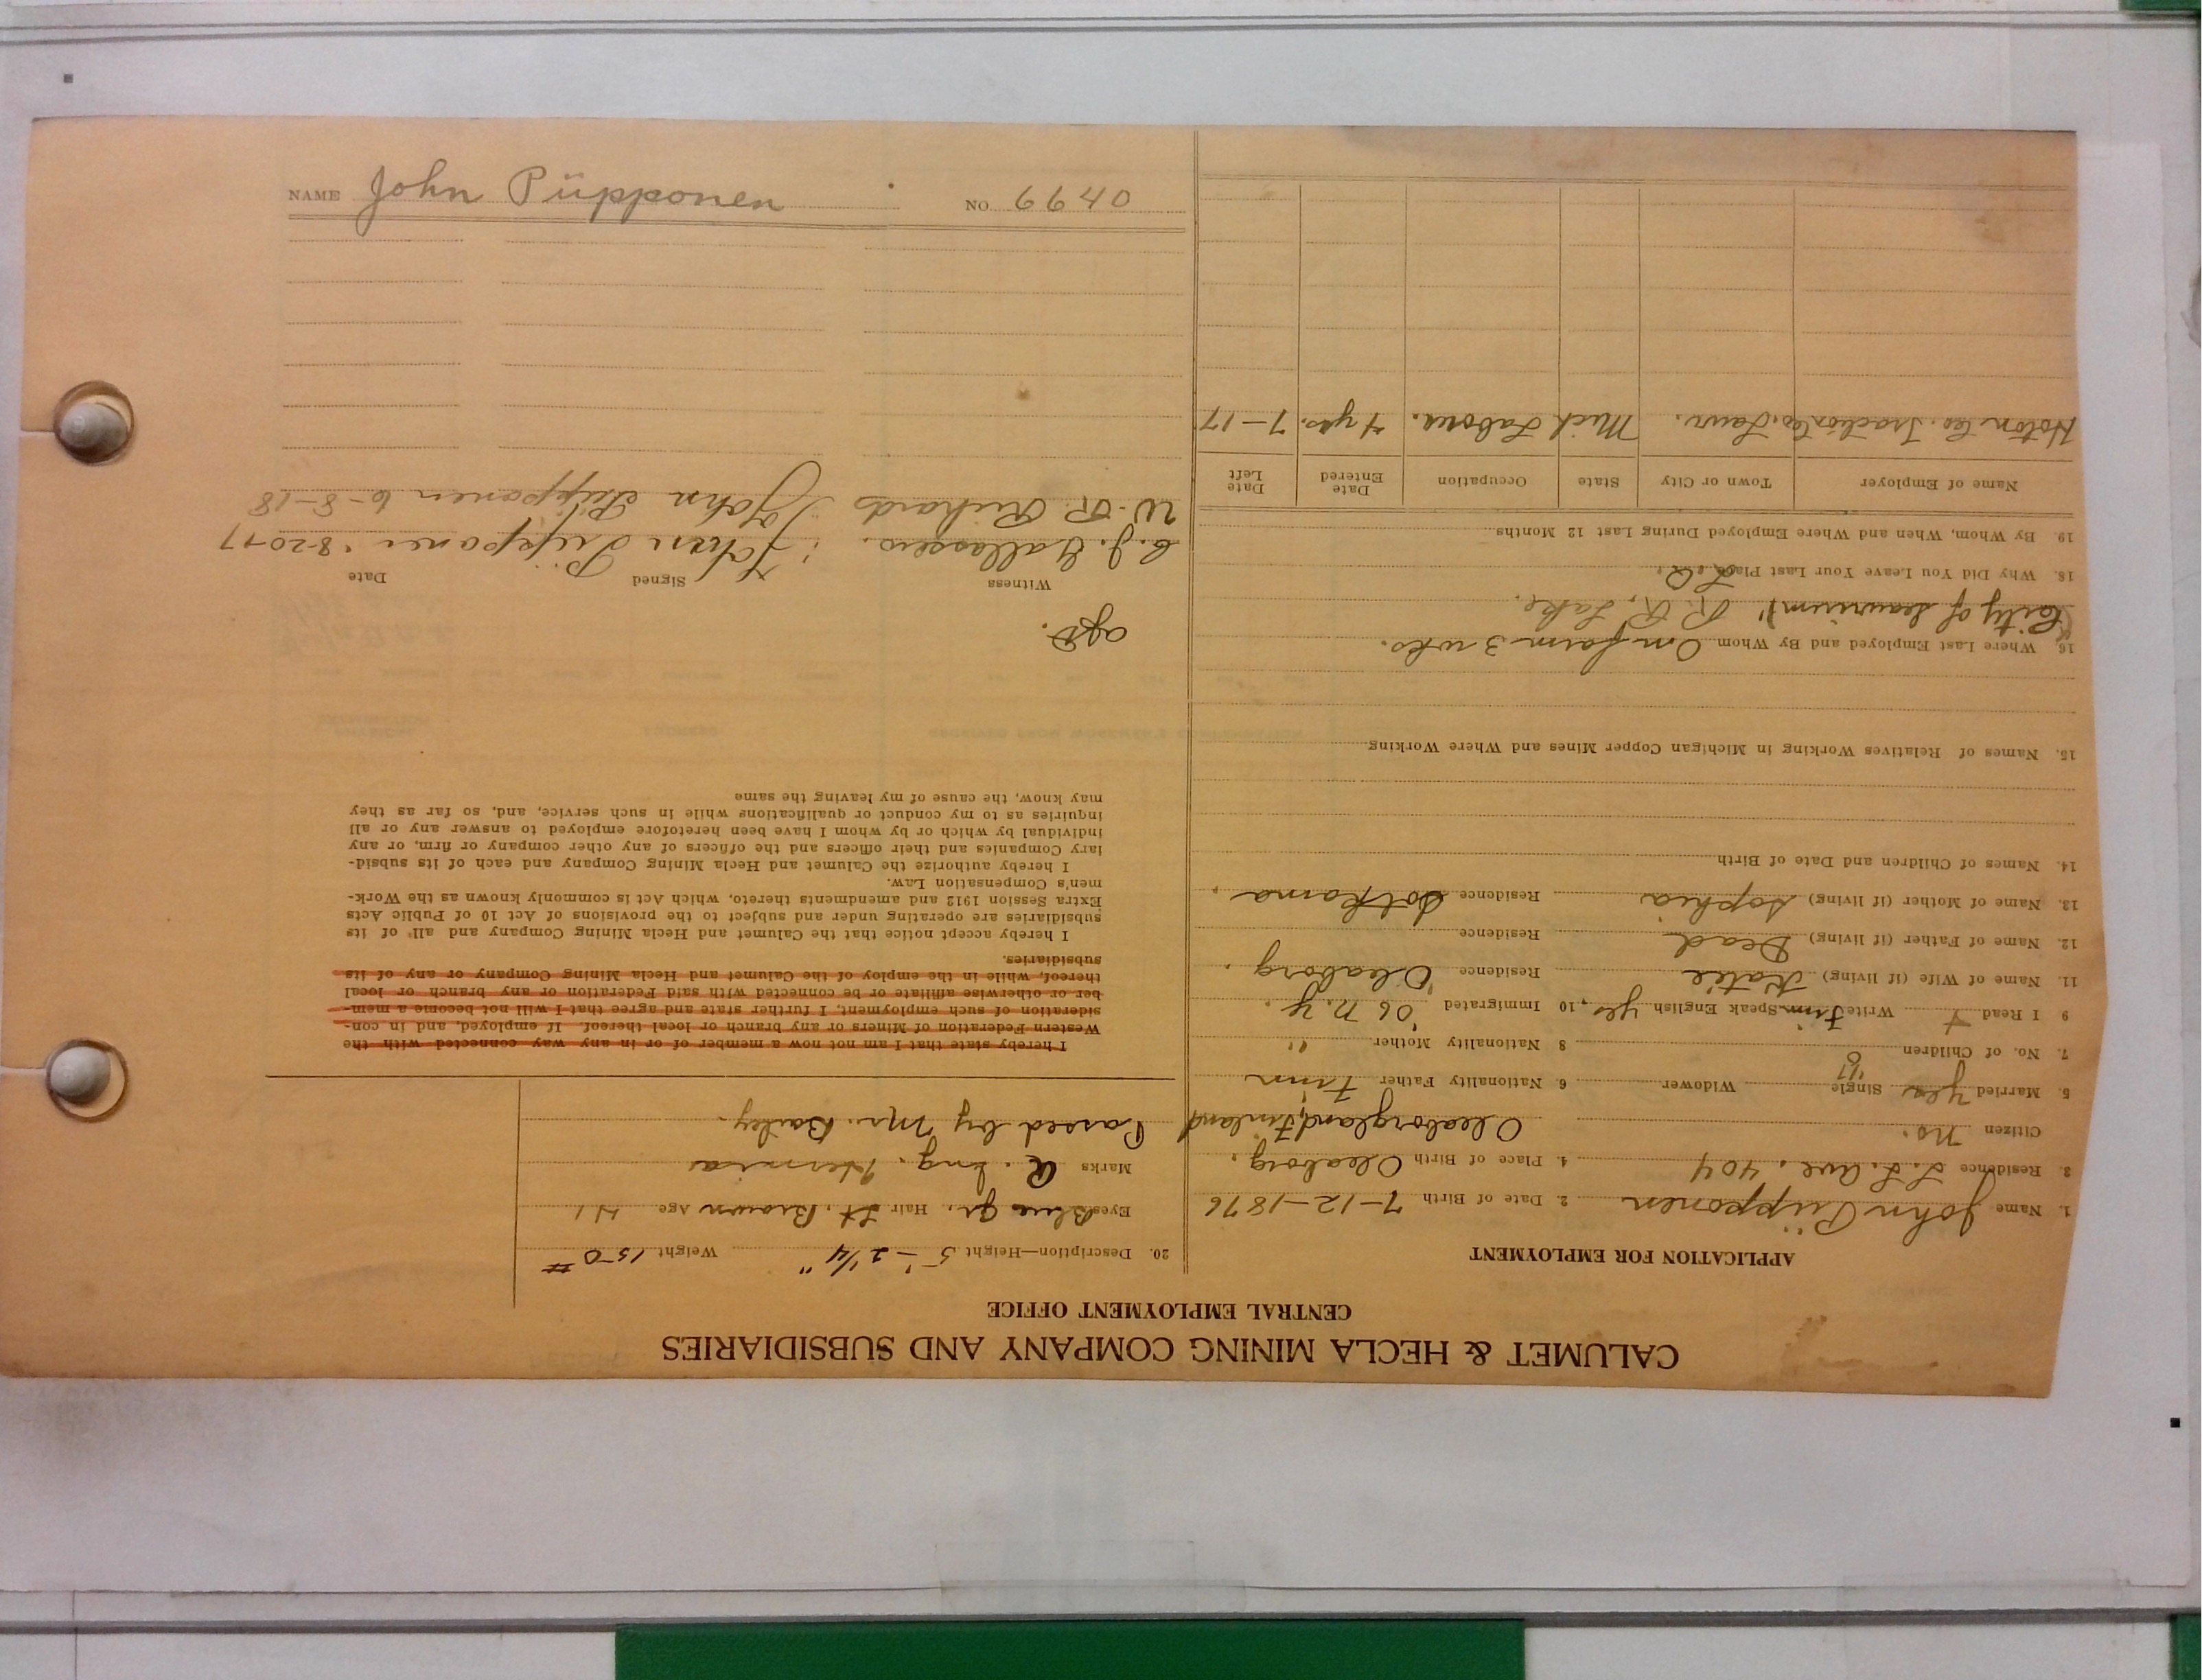 CALUMET & HECLA MINING COMPANY AND SUBSIDIARIES
CENTRAL EMPLOYMENT OFFICE
APPLICATION FOR EMPLOYMENT
1. Name John Piipponen 2. Date of Birth 7-12-1876
3. Residence L. L. Ave. 404 4. Place of Birth Oleaborg.
Citizen no. Oleaborgland, Finland
5 Married yes Single Widower 6. Nationality Father Finn
7. No. of Children 8 Nationality Mother "
9 I Read Write Finn Speak English yes, 10 Immigrated '06 N. Y.
11. Name of Wife (if living) Katie Residence Oleaborg.
12. Name of Father (if living) Dead Residence
13. Name of Mother (if living) Sophia Residence Sotkama.
14. Names of Children and Date of Birth
15. Names of Relatives Working in Michigan Copper Mines and Where Working
16. Where Last Employed and By Whom On farm 3 wks.
City of Laurium R. R. Lake.
18. Why Did You Leave Your Last Place
19. By Whom, When and Where Employed During Last 12 Months
Name of Employer Town or City State Occupation Date Entered Date Left
Hoton Co. Traction Co. Laur. Mich Labour. 4 yrs. 7-17
20. Description—Height 5'-2 1/4" Weight 150 #
Eyes Blue Gr. Hair Lt. Brown Age 41
Marks R. Ing. Hernia
Passed by Mr. Bailey.
I hereby state that I am not now a member of or in any way connected with the
Western Federation of Miners or any branch or local thereof. If employed, and in con-
sideration of such employment, I further state and agree that I will not become a mem-
ber or otherwise affiliate or be connected with said Federation or any branch or local
thereof, while in the employ of the Calumet and Hecla Mining Company or any of its
subsidiaries.
I hereby accept notice that the Calumet and Hecla Mining Company and all of its
subsidiaries are operating under and subject to the provisions of Act 10 of Public Acts
Extra Session 1912 and amendments thereto, which Act is commonly known as the Work-
men's Compensation Law.
I hereby authorize the Calumet and Hecla Mining Company and each of its subsid-
iary Companies and their officers and the officers of any other company or firm, or any
individual by which or by whom I have been heretofore employed to answer any or all
inquiries as to my conduct or qualifications while in such service, and, so far as they
may know, the cause of my leaving the same
Witness Signed Date
John Piipponen 8-20-17
W. P. Richards John Piipponen 6-8-18
NAME John Piipponen NO. 6640